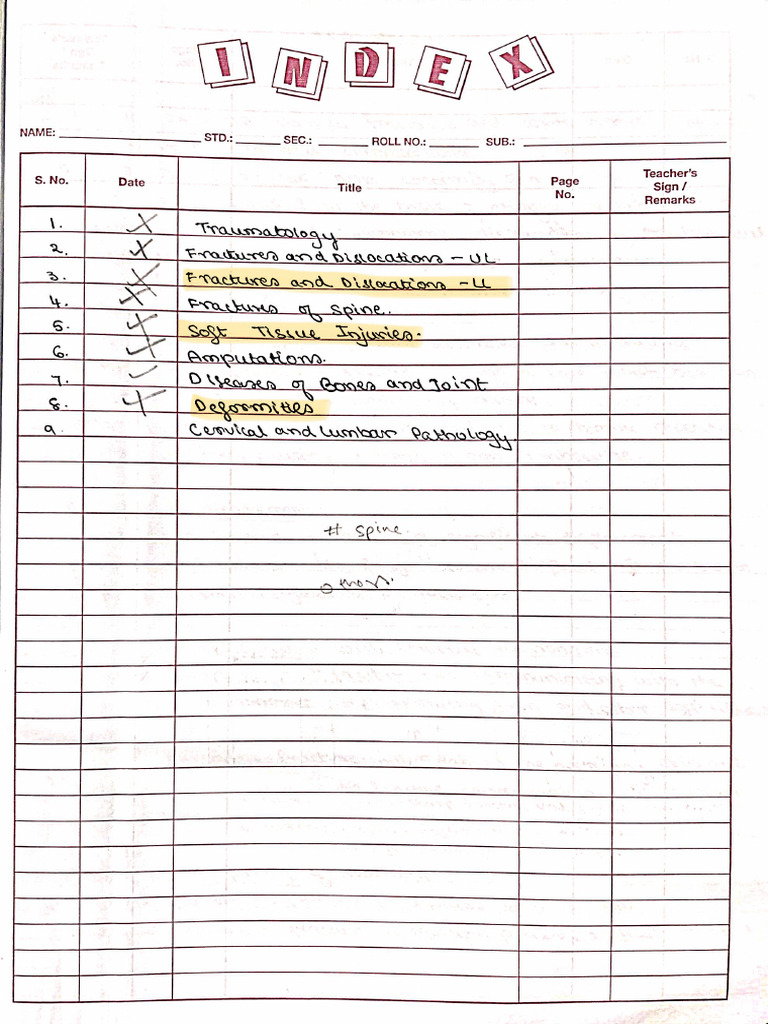 INDEX
NAME: STD.: SEC.: ROLL NO.: SUB.:
S. No. Date Title Page No. Teacher's Sign / Remarks
1. Traumatology
2. Fractures and Dislocations - UL
3. Fractures and Dislocations - LL
4. Fractures of Spine.
5. Soft Tissue Injuries.
6. Amputations.
7. Diseases of Bones and Joint
8. Deformities
9. Cervical and Lumbar Pathology.
# Spine.